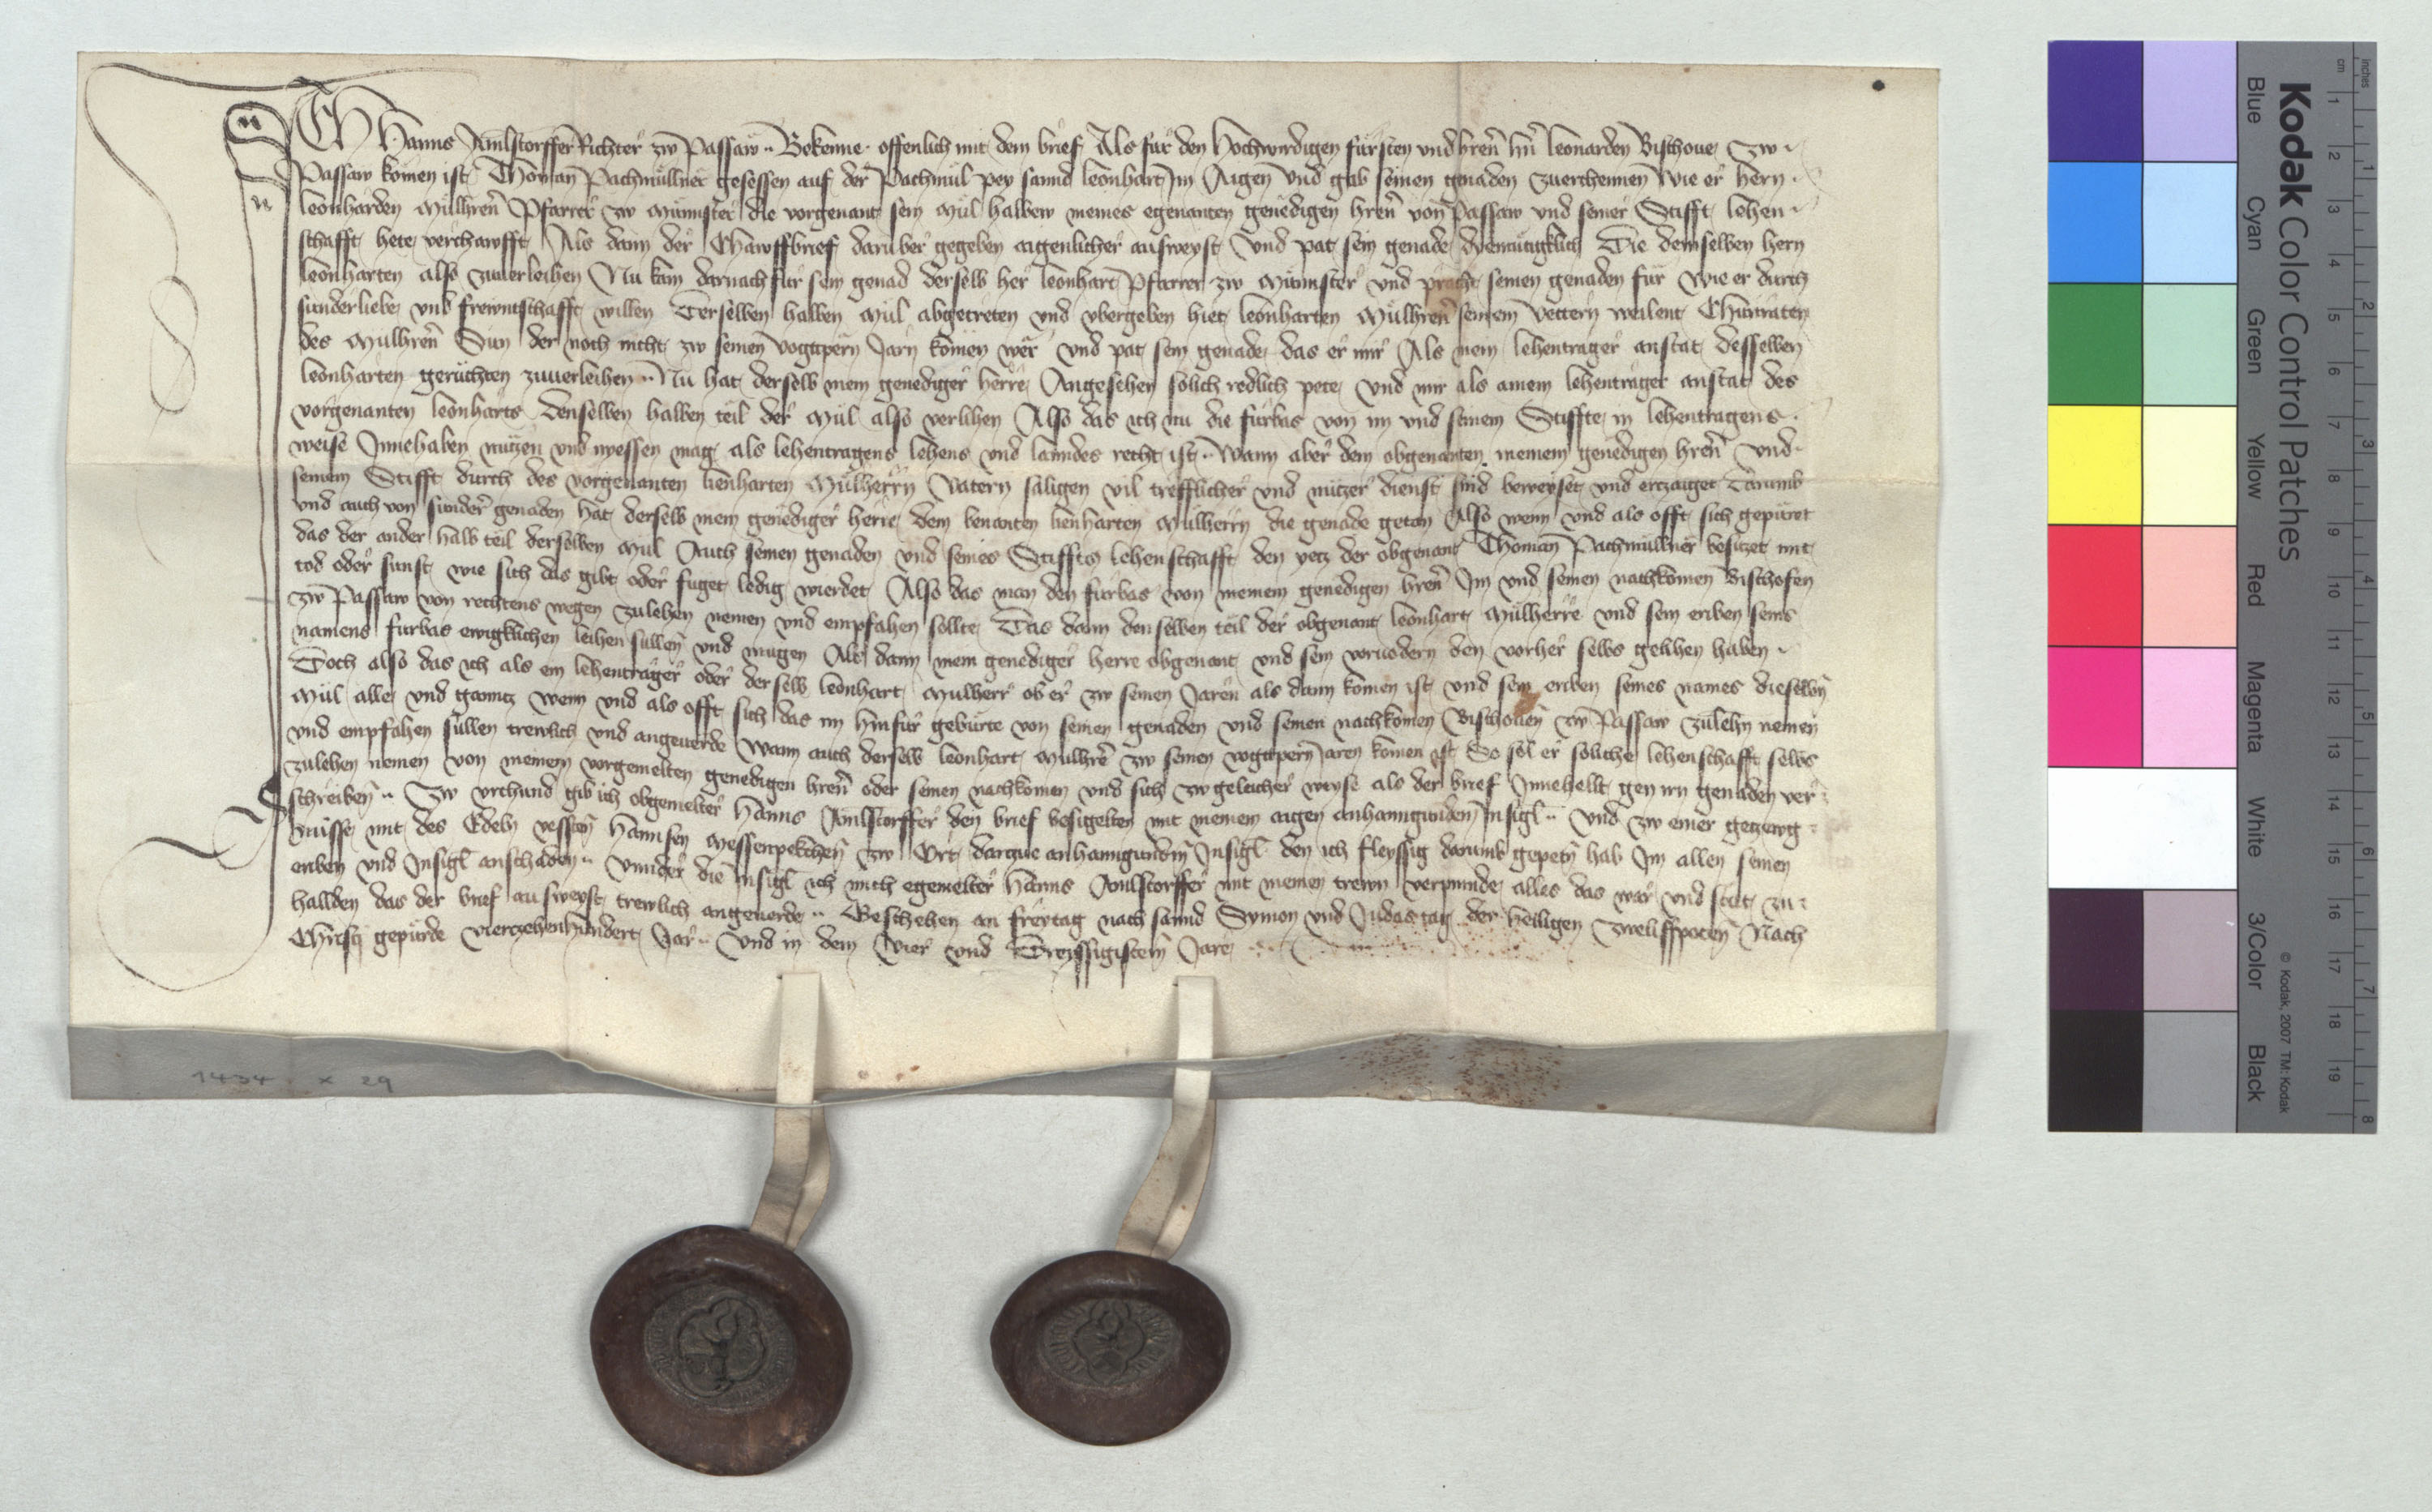 ICH Hanns Amlstorffer Richter zw Passaw Bekenne offenlich mit dem brief Als für den hochwirdigen fürsten und hren hrn leonarden Bischoue zw
Passaw komen ist Thoman Pachmüllner gesessen auf der Pachmül pey sannd leonhart Im Aigen und gab seinen genaden zuerchennen wie er hern
leonharden Mülhren Pfarrer zw Münnster die vorgenant sein Mül halbew meines egenanten genedigen hren von Passaw und seiner Stifft lehen
schafft hete verchawfft Als dann der Chawffbrief darüber gegeben aigenlicher ausweyst Und pat sein genade diemütigklich Die demselben hern
leonharten also zuuerleihen Nu kam darnach für sein genad derselb her leonhart Pfarrer zw Münnster und pracht seinen genaden für wie er durch
sunderliebe und frewntschafft willen Derselben halben Mül abgetreten und ubergeben hiet leonharten Mülhren seinem vettern weilent Chünraten
des Mülhren Sun der noch nicht zw seinen vogtpern Jarn komen wer und pat sein genade das er mir Als seinem lehentrager anstat desselben
leonharten gerüchten zuuerleihen Nu hat derselb mein genediger herre Angesehen solich redlich pete und mir als ainem lehentrager anstat des
vorgenanten leonharts Denselben halben teil der Mül also verlihen Also das ich nu die fürbas von im und seinem Stiffte in lehentragens
weise Innehaben nützen und nyessen mag als lehentragens lehens und lanndes recht ist Wann aber dem obgenanten meinem genedigen hren und
seinem Stifft durch des vorgenanten lienharten Mülherrn Vatern säligen vil trefflicher und nützer dienst sind beweyset und ertzaiget Darumb
und auch von sunder genaden hat derselb mein genediger herre dem benanten lienharten Mülherrn die genade getan Also wenn und als offt sich gepüret
das der ander halb teil derselben Mül Auch seinen genaden und seines Stiffts lehenschafft den yetz der obgenant Thoman Pachmüllner besitzet mit
tod oder sunst wie sich das gibt oder füget ledig wierdet Also das man den fürbas von meinem genedigen hren Im und seinen nachkomen Bischofen
zw Passaw von rechtens wegen zulehen nemen und empfahen sollte Das dann denselben teil der obgenant leonhart Mülherre und sein erben seins
namens fürbas ewigklichen leihen süllen und mügen Als dann mein genediger herre obgenant und sein voruodern den vorher selbs gelihen haben
Doch also das ich als ein lehentrager oder derselb leonhart Mülherr ob er zw seinen Jaren als dann komen ist und sein erben seines names dieselben
Mül alle und ganntz wenn und als offt sich das im hinfür gebürte von seinen genaden und seinen nachkomen Bischouen zw Passaw zulehn nemen
und empfahen süllen trewlich und angeuerde Wann auch derselb leonhart Mülhre zw seinen vogtpern Jaren komen ist So sol er soliche lehenschafft selbs
zulehen nemen von meinem vorgemelten genedigen hren oder seinen nachkomen und sich zw geleicher weyse als der brief Innehellt gen irn genaden ver
schreiben Zw urchund gib ich obgemelter Hanns Amlstorffer den brief besigelten mit meinem aigen anhanngunden Insigl Und zw einer getzewg
nüsse mit des Edeln vessten Hannsen Messenpekchen zw Ort daran anhanngundem Insigl den ich fleyssig darumb gepeten hab Im allen seinen
erben und Insigl anschaden Unnder die Insigl ich mich egemelter Hanns Amlstorffer mit meinen trewn verpinnde alles das war und stät zu
hallden das der brief ausweyst trewlich angeuerde Geschehen an freytag nach sannd Symon und Judas tag der heiligen zweliffpoten Nach
Christi gepürde vierczehenhundert Jar Und in dem Vier und Dreyssigistem Jare
1434 X 29
Kodak Color Control Patches
© Kodak, 2007 TM: Kodak
Blue Cyan Green Yellow Red Magenta White 3/Color Black
cm 1 2 3 4 5 6 7 8 9 10 11 12 13 14 15 16 17 18 19
inches 1 2 3 4 5 6 7 8